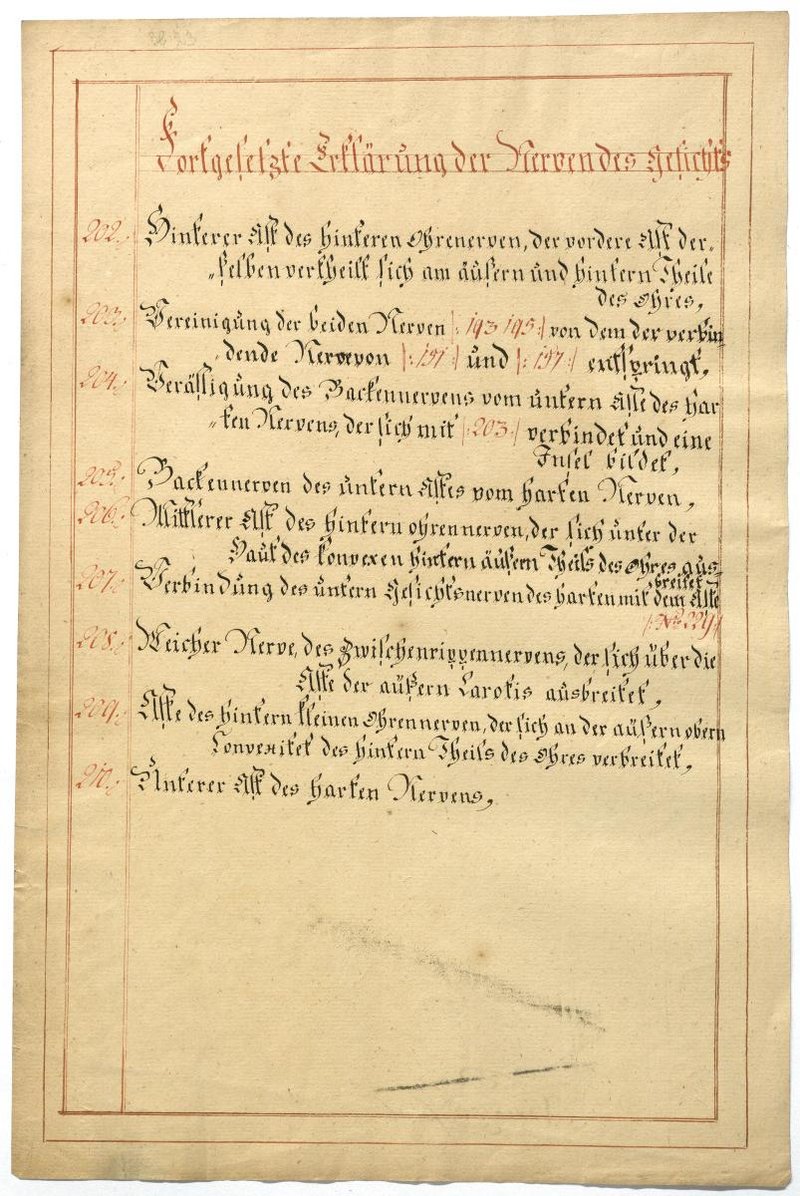 Fortgesetzte Erklärung der Nerven des Gesichts
202. Hinterer Ast des hinteren Ohrenerven, der vordere Ast der„
„selben vertheilt sich am äußern und hintern Theile
des Ohres,
203. Vereinigung der beiden Nerven /: 193 195:/ von dem der verbin
dende Nerve von /: 151 :/ und /: 157:/ entspringt,
204. Verästigung des Backennervens vom untern Aste des har
„ten Nervens, der sich mit /:203:/ verbindet und eine
Insel bildet,
205. Backennerven des untern Astes vom harten Nerven,
206. Mittlerer Ast des hintern ohrennerven, der sich unter der
Haut des konvexen hintern äußern Theils des Ohres aus„
breitet
207. Verbindung des untern Gesichtsnerven des harten mit dem Aste
/:No 229:/
208. Weicher Nerve, des Zwischenrippennervens, der sich über die
Äste der äußern Carotis ausbreitet,
209. Äste des hintern kleinen Ohrennerven, der sich an der äußern obern
Convexitet des hintern Theils des Ohres verbreitet,
210. Unterer Ast des harten Nervens,